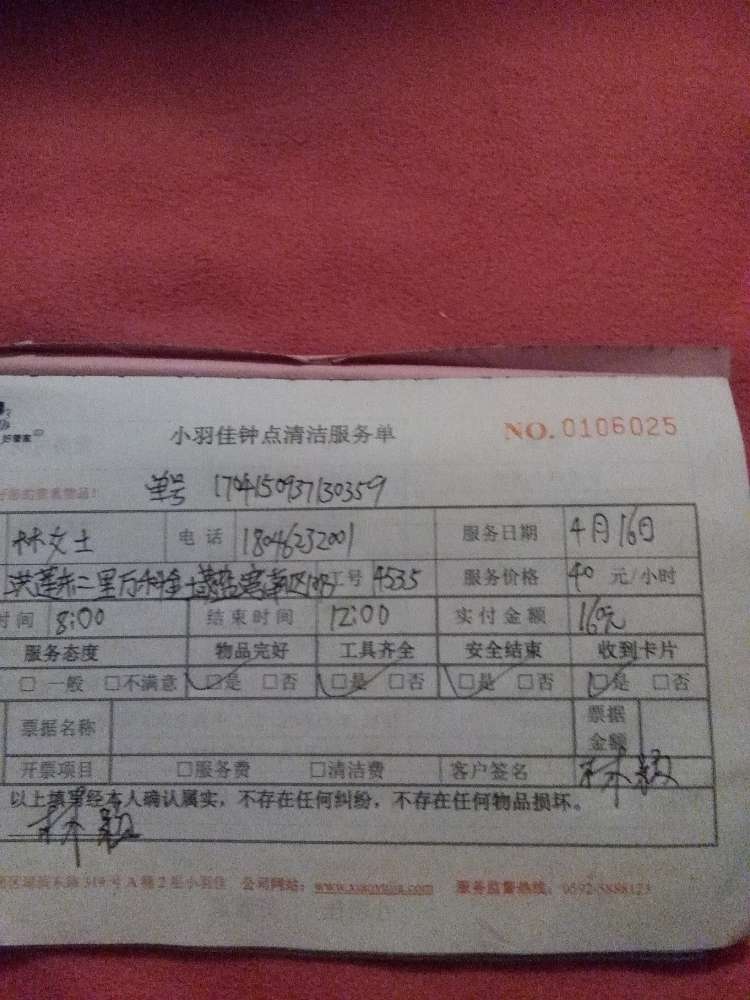 好管家
小羽佳钟点清洁服务单 NO. 0106025
单号 170415093713035９
林女士 电话 18046232001 服务日期 4月16日
工号 4535 服务价格 40 元/小时
时间 8:00 结束时间 12:00 实付金额 160元
服务态度 物品完好 工具齐全 安全结束 收到卡片
□ 一般 □不满意 □是 □否 □是 □否 □是 □否 □是 □否
票据名称 票据金额
开票项目 □服务费 □清洁费 客户签名 林颖
以上填写经本人确认属实，不存在任何纠纷，不存在任何物品损坏。
林颖
319号A幢2层小羽佳 公司网站：www.xiaoyujia.com 服务监督热线：0592-5888123